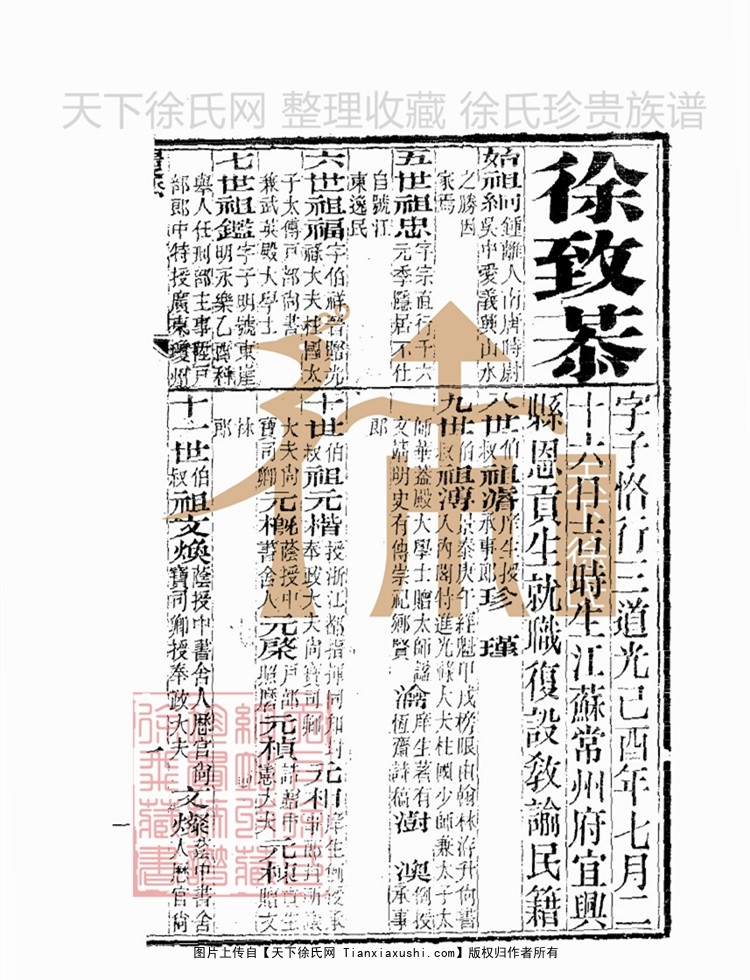 天下徐氏网 整理收藏 徐氏珍贵族谱
徐致恭
字子恪行三道光己酉年七月二
十六日吉時生江蘇常州府宜興
縣恩貢生就職復設教諭民籍
始祖絅鍾離人南唐時尉
始祖絅吳中愛義興山水
之勝因
家焉
五世祖忠字宗直行千六
元季隱居不仕
自號江
東逸民
六世祖福字伯祥晉贈光
祿大夫柱國太
子太傅戶部尚書
兼武英殿大學士
七世祖鑑字子明號東崖
明永樂乙酉科
舉人任刑部主事陞戶
部郎中特授廣東瓊州
八世伯叔祖濟庠生授承事郎珍 瑾
九世伯叔祖溥景泰庚午經魁甲戌榜眼由翰林洊升尚書
入內閣特進光祿大夫柱國少師兼太子太
師華蓋殿大學士贈太師諡
文靖明史有傳崇祀鄉賢
瀹庠生著有恆齋詩稿澍 渙例授承事
郎
十世伯叔祖元楷授浙江都指揮同知封奉政大夫尚寶司卿元相庠生例授承事郎
大夫尚寶司卿元概蔭授中書舍人元棨戶部照磨元楨元楝
十一世伯叔祖文煥蔭授中書舍人歷官尚寶司卿授奉政大夫文燦蔭中書舍人歷官尚
一
图片上传自【天下徐氏网 Tianxiaxushi.com】版权归作者所有